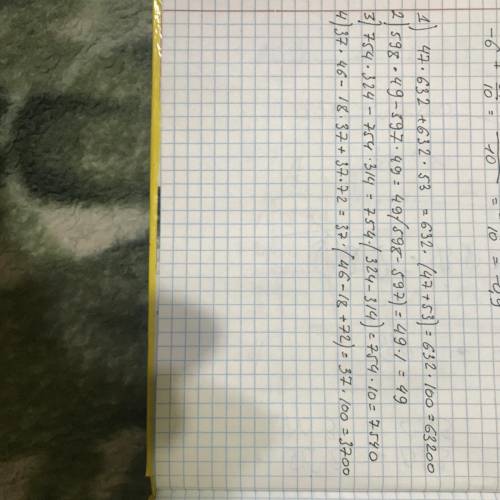 -6 + /10 = -10 = -10 = -4,9
1) 47·632+632·53 = 632·(47+53)=632·100=63200
2) 598·49-597·49=49(598-597)=49·1=49
3) 754·324-754·314=754·(324-314)=754·10=7540
4) 37·46-18·37+37·72=37·(46-18+72)=37·100=3700